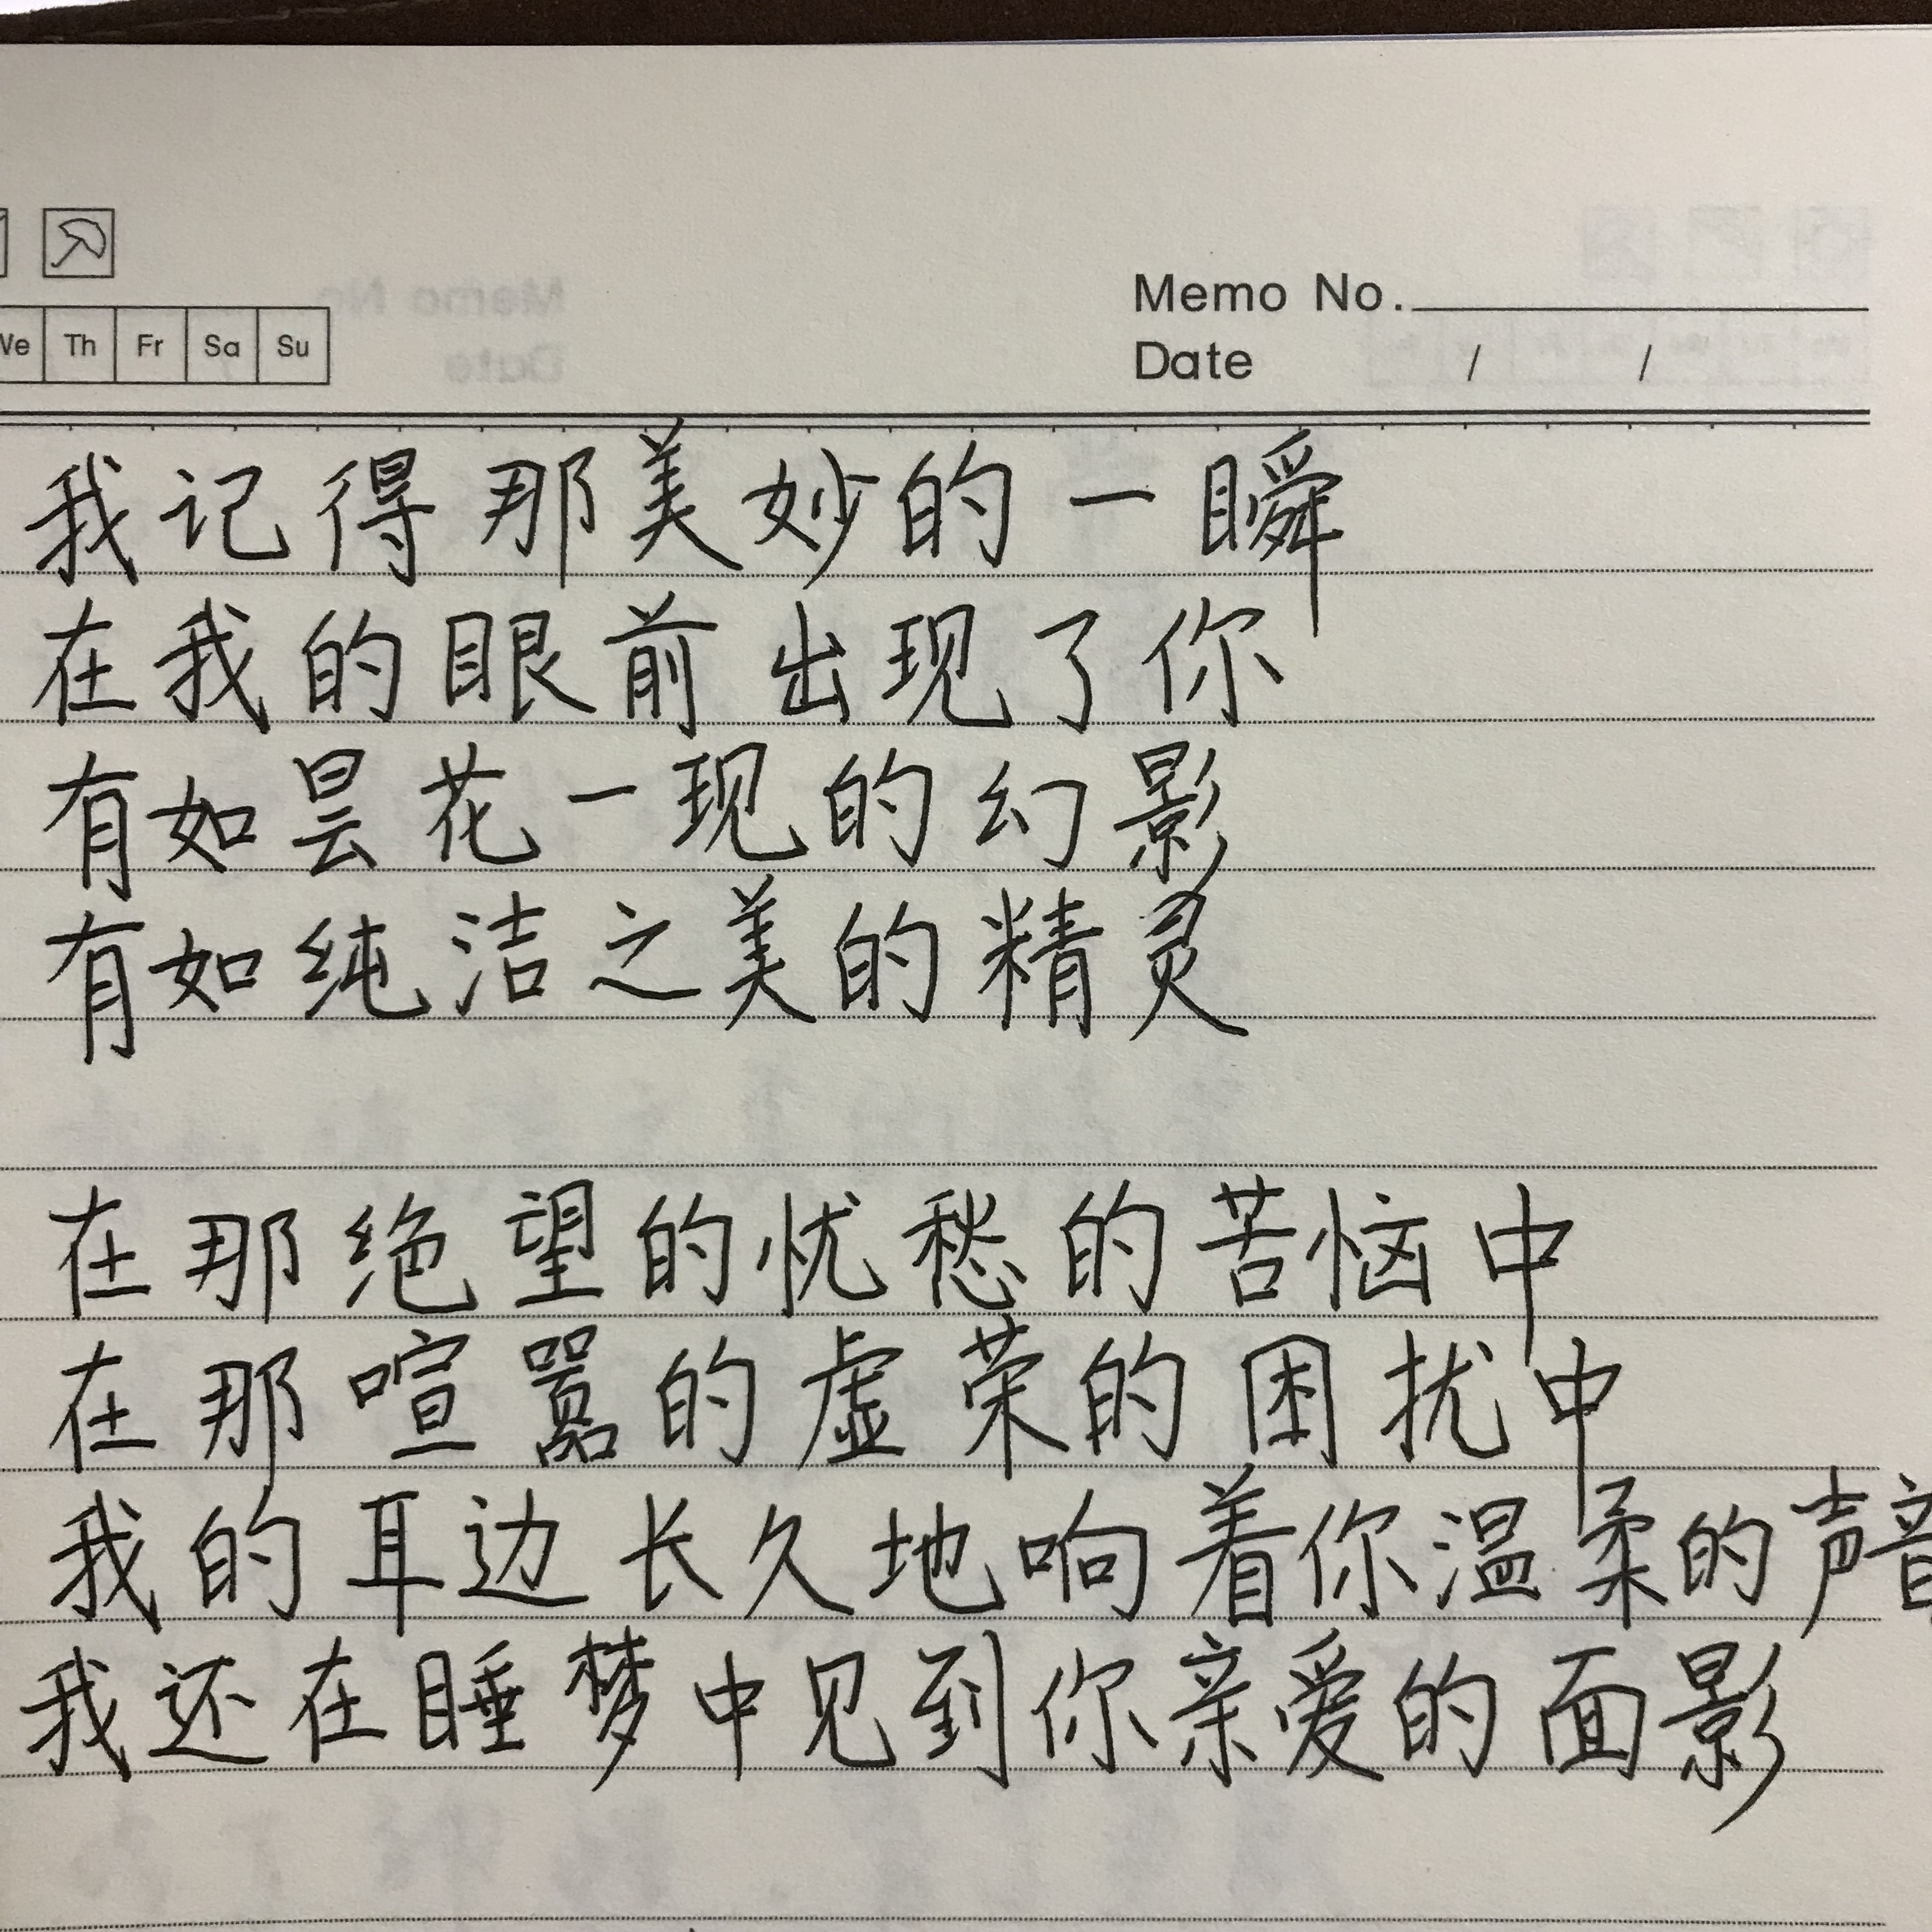 Memo No.
We Th Fr Sa Su
Date / /
我记得那美妙的一瞬
在我的眼前出现了你
有如昙花一现的幻影
有如纯洁之美的精灵
在那绝望的忧愁的苦恼中
在那喧嚣的虚荣的困扰中
我的耳边长久地响着你温柔的声音
我还在睡梦中见到你亲爱的面影